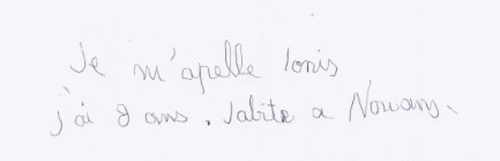 Je m'apelle Ionis
j'ai 8 ans. Jabite a Nouans.